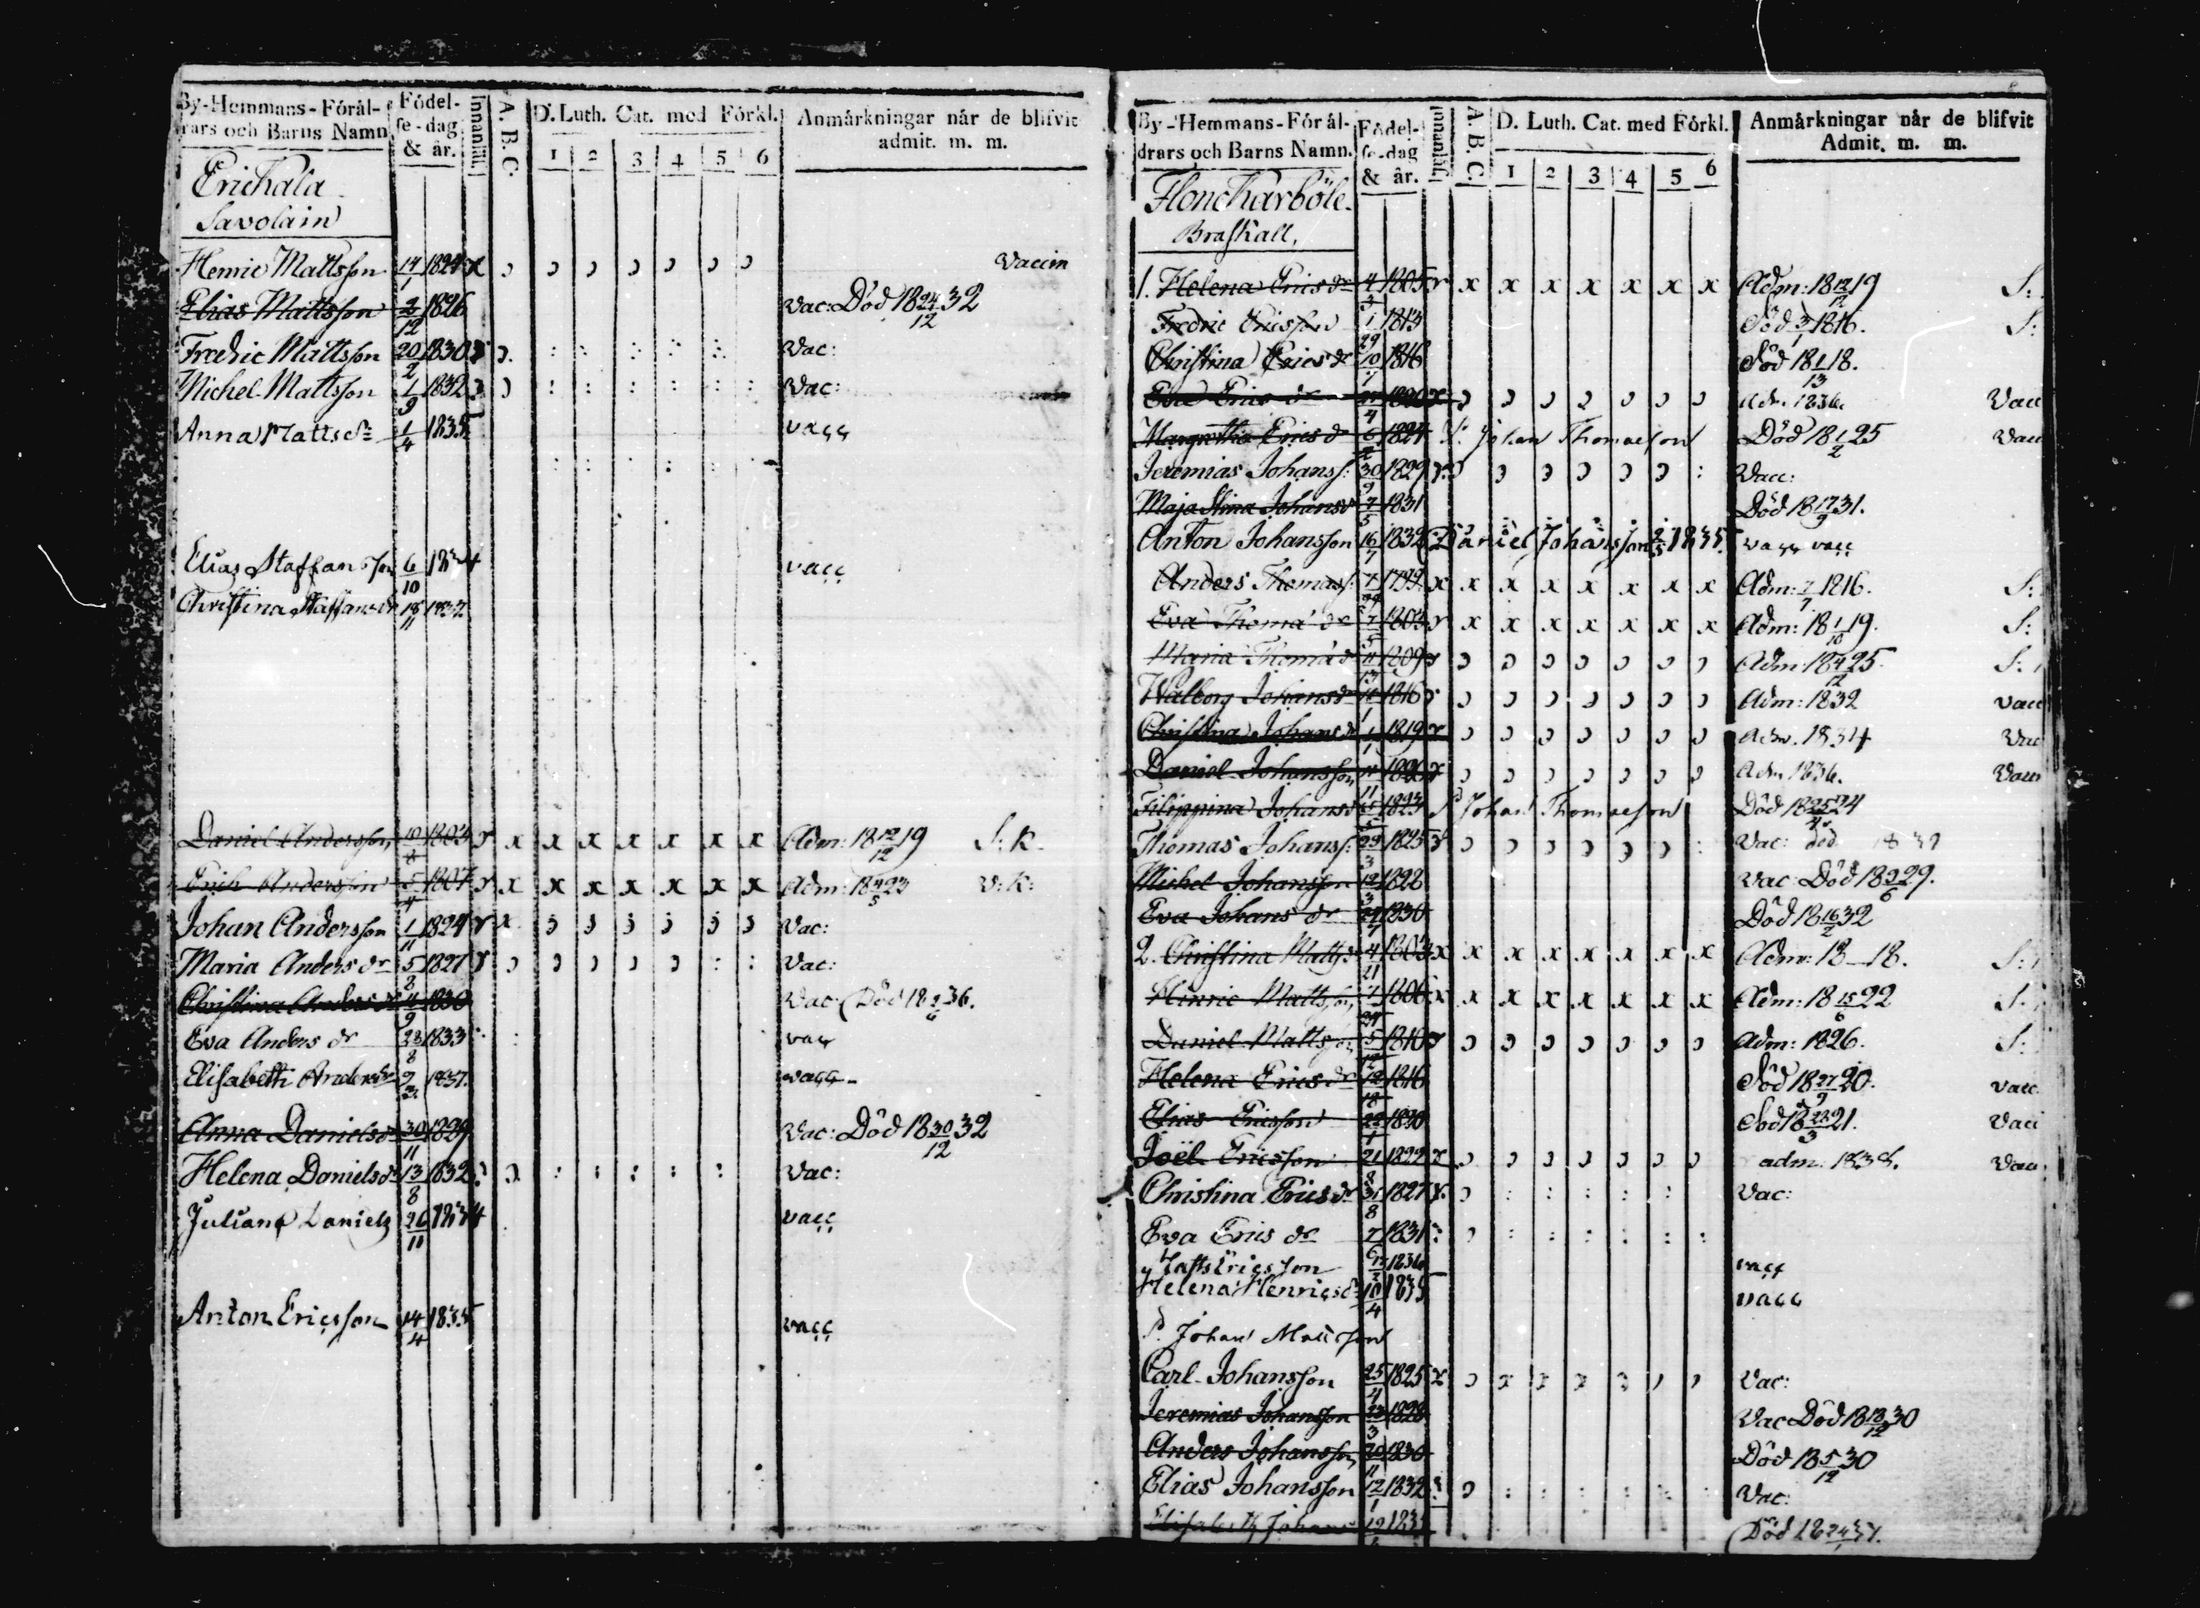 By-Hemmans-Förål- Födel- Innanläs. A. B. C. D. Luth. Cat. med Förkl. Anmårkningar når de blifvit
rars och Barns Namn se-dag & år. 1 2 3 4 5 6 admit. m. m.
Erichala
Savolain
Henric Mattsson 14/1 1824 x Vaccin
Elias Mattsson 2/12 1826 Vac: Död 18 24/12 32
Fredric Mattsson 20/2 1830 Vac:
Michel Mattsson 1/9 1832 Vac:
Anna Matts dr 1/4 1835 vacc
Elias Staffansson 6/10 1834 vacc
Christina Staffansdr 18/11 1837
Daniel Andersson 10/8 1803 x x x x x x x Adm: 18 12/12 19 S: K.
Erich Andersson 5/4 1807 x x x x x x x Adm: 18 4/5 23 V: K:
Johan Andersson 1/11 1824 x Vac:
Maria Anders dr 5/8 1827 Vac:
Christina Anders dr 4/9 1830 Vac: Död 18 36.
Eva Anders dr 23/8 1833 vac
Elisabeth Andersdr 9 1837. vacc
Anna Danielsdr 30/11 1829 Vac: Död 18 30/12 32
Helena Danielsdr 13/8 1832 Vac:
Juliana Daniels 26/11 1834 vacc
Anton Ericsson 14/4 1835 vacc
By-Hemmans-Förål- Födel- Innanläs. A. B. C. D. Luth. Cat. med Förkl. Anmårkningar når de blifvit
drars och Barns Namn. se-dag & år. 1 2 3 4 5 6 Admit. m. m.
Honckarböle
Braskall,
1. Helena Erics dr 4/3 1805 x x x x x x x Adm: 18 12/12 19 S:
Fredric Ericsson 1/29 1813 Död 3/1 1816. S:
Christina Erics dr 10/7 1816 Död 18 1/13 18.
Eva Erics dr 1820 x Adm. 1836. Vacc
Margretha Erics dr 6/2 1824 P. Johan Thomasson Död 18 1/2 25 Vacc
Jeremias Johanss: 30/9 1829 Vacc:
Maja Stina Johansdr 7/5 1831 Död 18 17/9 31.
Anton Johansson 16/7 1832 Daniel Johansson 2/5 1835. vacc vacc
Anders Thomass: 7 1799 x x x x x x x x Adm: 7/7 1816. S:
Eva Thomæ dr 7/5 1803 x x x x x x x Adm: 18 1/10 19. S:
Maria Thomæ dr 11/13 1809 Adm: 18 4/12 25. S:
Walborg Johansdr 11/1 1816 Adm: 1832 Vacc
Christina Johansdr 1/1 1819 Adm. 1834 Vac
Daniel Johansson 11/11 1820 Adm 1836. Vacc
Filippina Johansdr 1823 P Johan Thomasson Död 18 25 24
Thomas Johanss: 23/3 1825 Vac: död
Michel Johansson 12/3 1828 Vac: Död 18 3/6 29.
Eva Johans dr 27/7 1830 Död 18 16/2 32
2. Christina Matts dr 4/21 1803 x x x x x x x x Adm: 18 18. S:
Henric Mattsson 7/24 1806 x x x x x x x x Adm: 18 15/6 22 S:
Daniel Mattsson 5/12 1810 Adm: 1826. S:
Helena Erics dr 12/18 1816 Död 18 27/9 20. vacc
Elias Ericsson 22/1 1820 Död 18 22/3 21. Vacc
Joël Ericsson 21/8 1822 x adm: 1838. Vacc
Christina Ericsdr 31/8 1827 Vac:
Eva Erics dr 7 1831
Matts Ericsson 1836 vacc
Helena Henricsdr 10/4 1835 vacc
P. Johan Mattsson
Carl Johansson 25/4 1825 x Vac:
Jeremias Johansson 23/3 1828 Vac Död 18 18/12 30
Anders Johansson 20/11 1830 Död 18 5/12 30
Elias Johansson 12/1 1832 Vac:
Elisabeth Johans 19 Död 18 37.